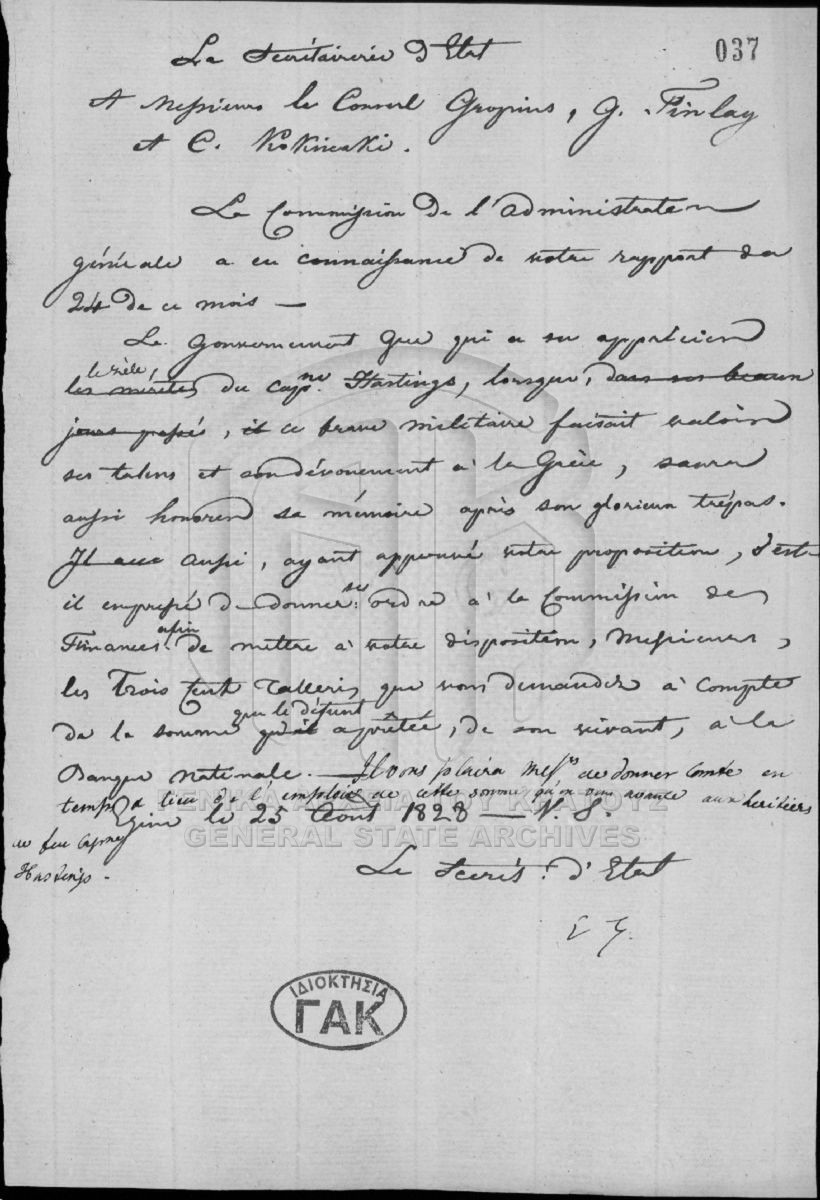 037
La Secrétairerie d'Etat
A Messieurs le Consul Gropius, G. Finlay
et C. Kokinaki.
La Commission de l'administration
générale a eu connaissance de votre rapport du
24 de ce mois —
Le Gouvernement Grec qui a su apprécier
le zèle,
les mérites du capne. Hastings, lorsque, dans ses beaux
jours passés, il ce brave militaire faisait valoir
ses talens et son dévouement à la Grèce, saura
aussi honorer sa mémoire après son glorieux trépas.
Il aussi, ayant approuvé votre proposition, s'est-
il empressé de donner ses ordre à la Commission des
Finances afin de mettre à votre disposition, Messieurs,
les Trois Cent Talleris que vous demandez à compte
que le défunt
de la somme qu'il a prêtée, de son vivant, à la
Banque nationale. — Il vous plaira Messrs de donner Comte en
temps & lieu de l'emploi de cette somme, qu'on vous avance aux heritiers
de feu Capne
Hastings.
Egine le 25 Août 1828 — V. S.
Le Secrés. d'Etat
ΓΕΝΙΚΑ ΑΡΧΕΙΑ ΤΟΥ ΚΡΑΤΟΥΣ
GENERAL STATE ARCHIVES
ΙΔΙΟΚΤΗΣΙΑ
ΓΑΚ